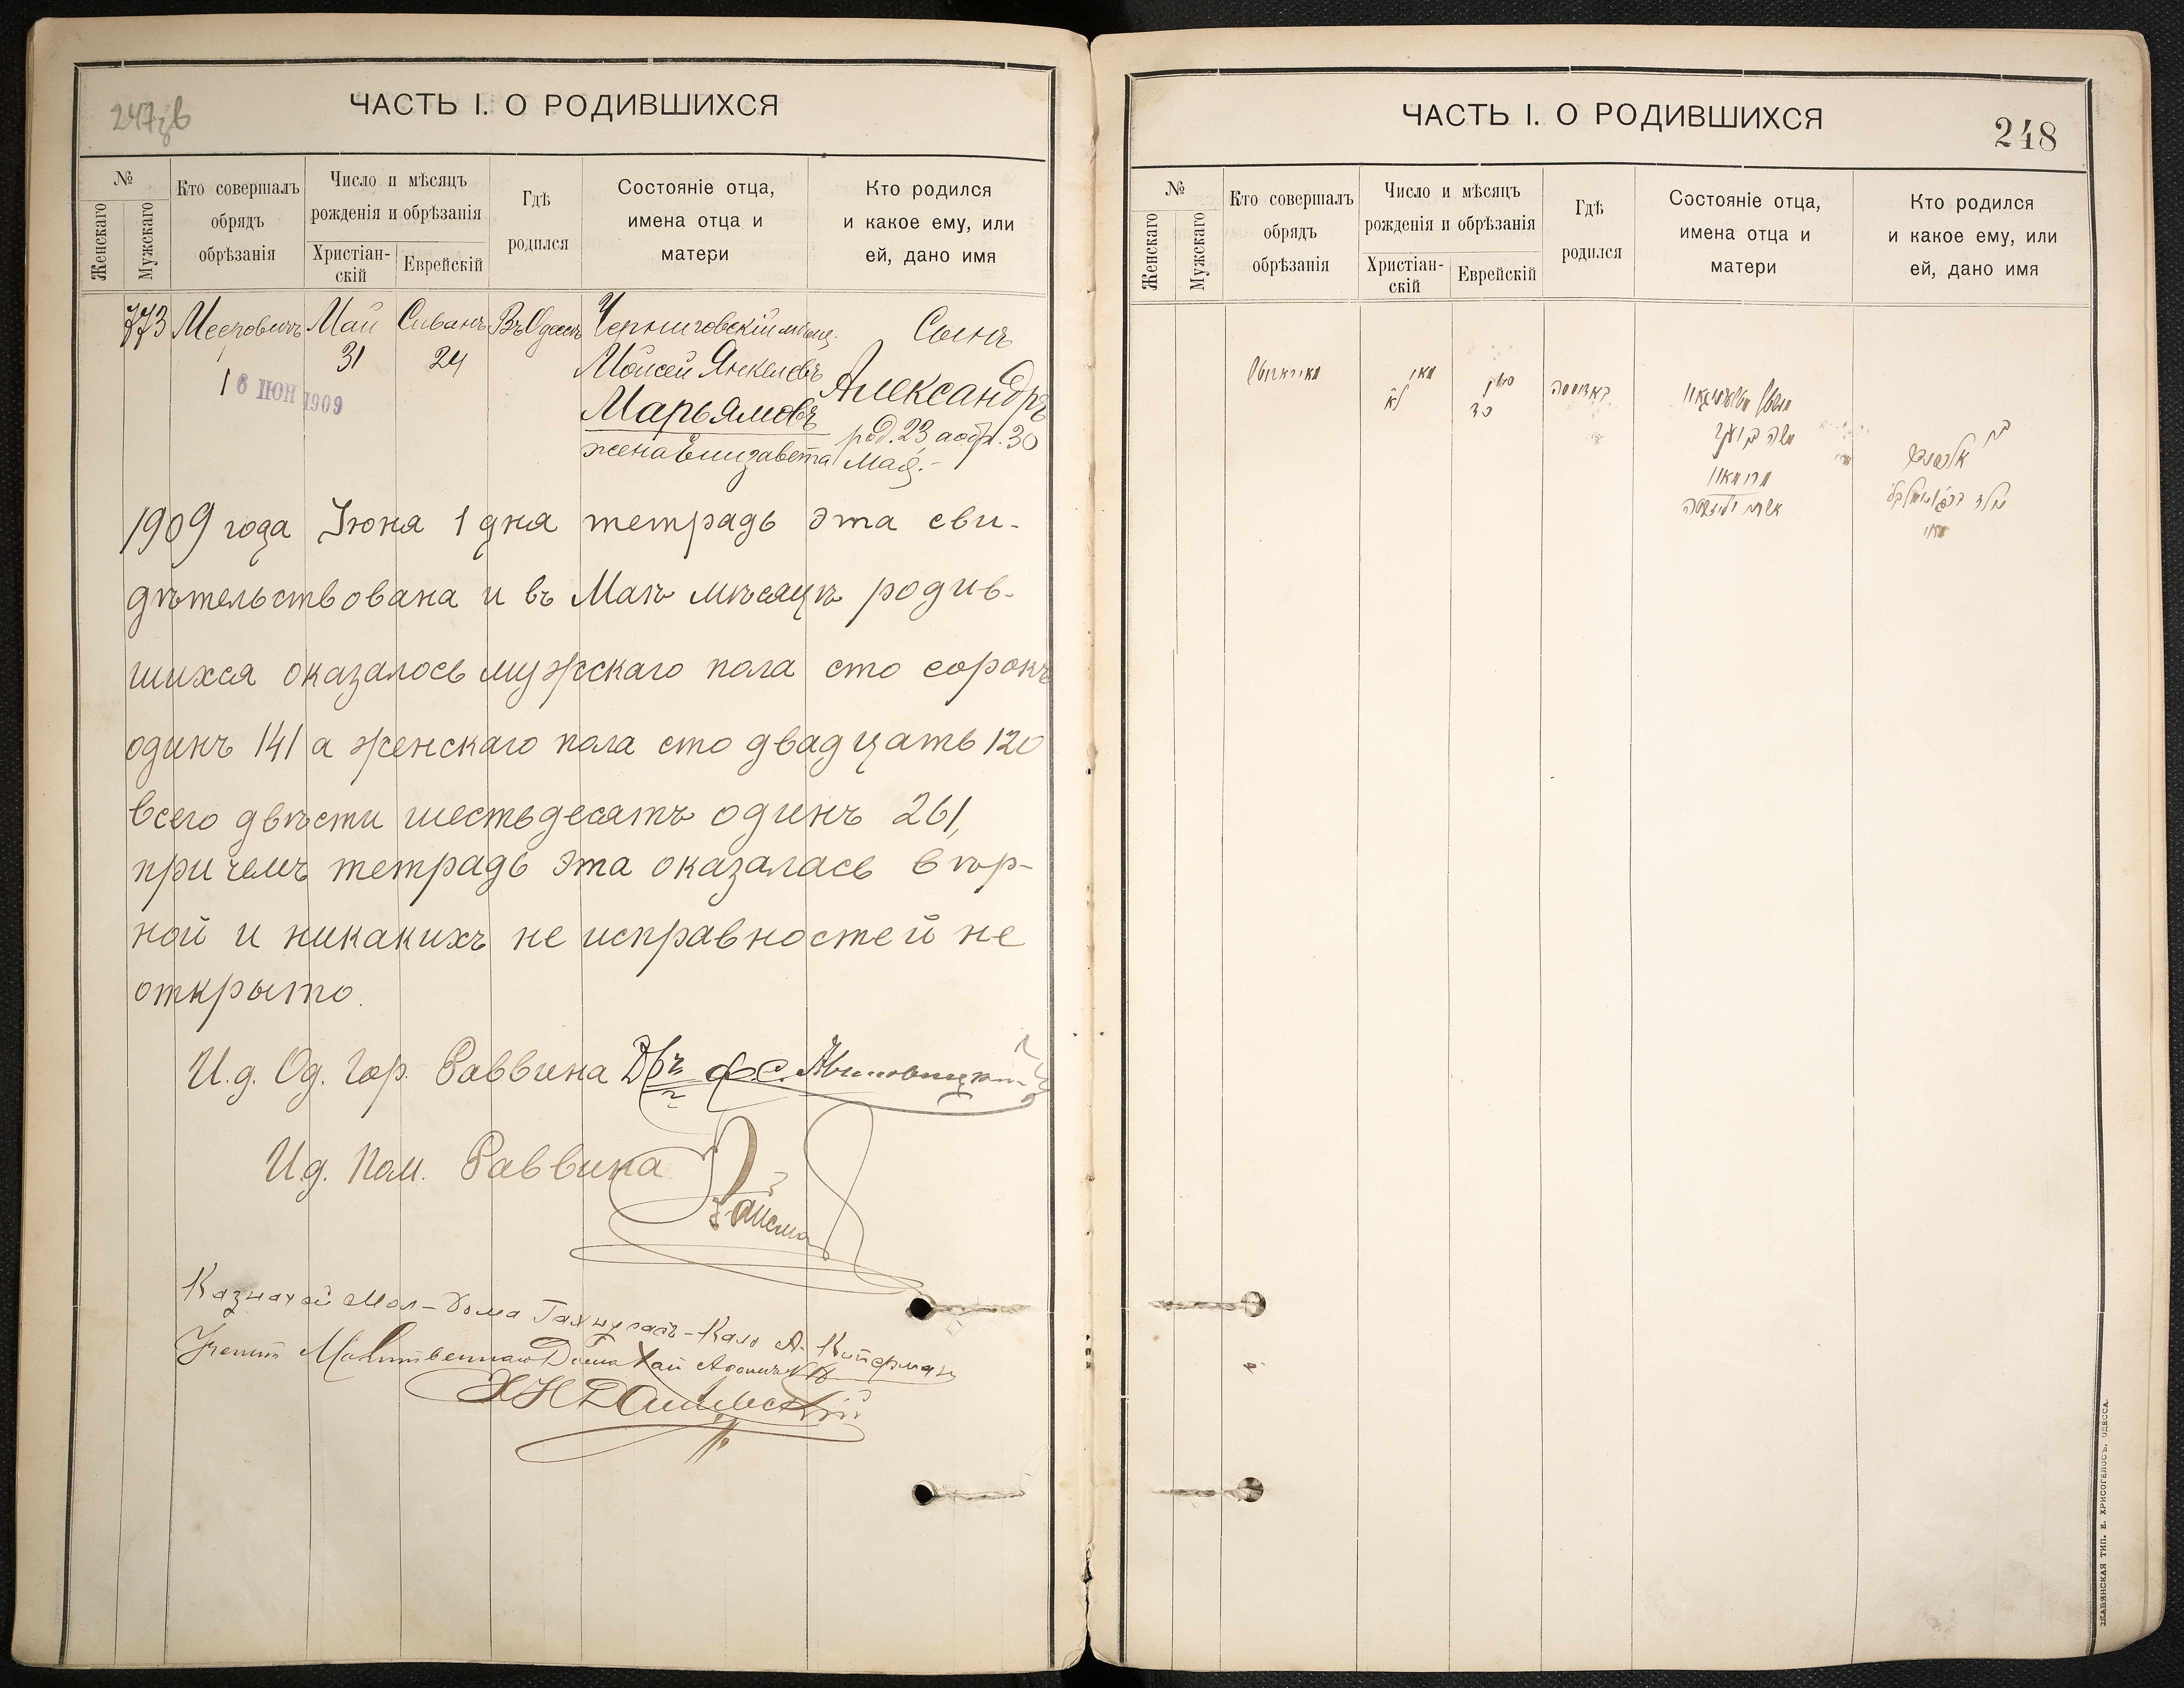 247об
ЧАСТЬ I. О РОДИВШИХСЯ
№
Женскаго
Мужскаго
Кто совершалъ
обрядъ
обрѣзанія
Число и мѣсяцъ
рожденія и обрѣзанія
Христіан-
скій
Еврейскій
Гдѣ
родился
Состояніе отца,
имена отца и
матери
Кто родился
и какое ему, или
ей, дано имя
773 Мееровичъ Май Сиванъ Въ Одессѣ Черниговскій мѣщ. Сынъ
31 24 Моисей Янкелевъ Александръ
16 ІЮН 1909
Марьямовъ род. 23 а обр. 30
жена Елизавета Мая.-
1909 года Іюня 1 дня тетрадь эта сви-
дѣтельствована и въ Маѣ мѣсяцѣ родив-
шихся оказалось мужскаго пола сто сорокъ
одинъ 141 а женскаго пола сто двадцать 120
всего двѣсти шестьдесятъ одинъ 261,
при чемъ тетрадь эта оказалась вѣр-
ной и никакихъ не исправностей не
открыто.
И.д. Од. Гор. Раввина Д-ръ
И.д. Пом. Раввина
Казначей Мол-Дома
Ученый Молитвеннаго Дома
ЧАСТЬ I. О РОДИВШИХСЯ
248
№
Женскаго
Мужскаго
Кто совершалъ
обрядъ
обрѣзанія
Число и мѣсяцъ
рожденія и обрѣзанія
Христіан-
скій
Еврейскій
Гдѣ
родился
Состояніе отца,
имена отца и
матери
Кто родился
и какое ему, или
ей, дано имя
מאי
לא
סיון
כד
באדעססה
משה בן יעקב
בן
מאי
СЛАВЯНСКАЯ ТИП. Е. ХРИСОГЕЛОСЪ, ОДЕССА.